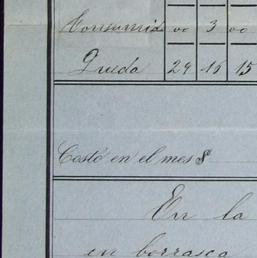 Consumido oo 3 oo
Queda 29 16 15
Costó en el mes $
En la
en borrasca